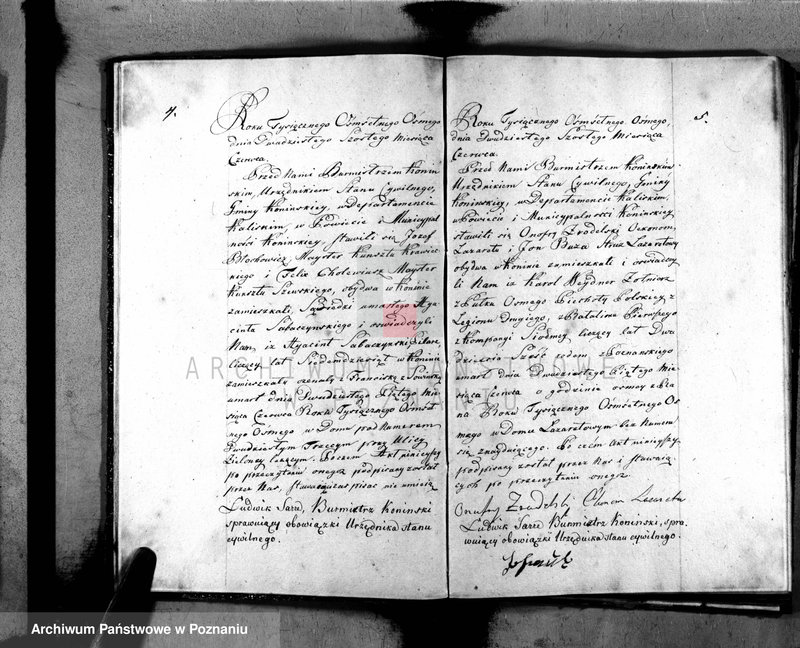 4.
Roku Tysiącznego Ośmsetnego Osmego
dnia Dwudziestego Szostego Miesiąca
Czerwca.
Przed Nami Burmistrzem Konin
skim, Urzędnikiem Stanu Cywilnego,
Gminy Koninskiey, w Departamencie
Kaliskim, w Powiecie i Municypal
ności Koninskiey, stawili się Jozef
Majster Kunsztu Krawiec
kiego i Felix Cholewiusz Majster
Kunsztu Szewskiego, obydwa w Koninie
zamieszkali, Sąsiedzi zmarłego Hya
cinta Sabaczynskiego i oswiadczyli
Nam, iz Hyacint Sabaczynski
liczący lat Siedmdziesiąt w Koninie
zamieszkały ożenały z Franciszką
umarł dnia Dwudziestego Piątego Mie
siąca Czerwca Roku Tysiącznego Ośmset
nego Osmego w Domu pod Numerem
Dwudziestym Trzecim przy Ulicy
Zieloney leżącym. Poczem Akt ninieyszy
po przeczytaniu onego podpisany został
przez Nas, stawaiący zaś pisac nie umieią
Ludwik Sard, Burmistrz Koninski
sprawuiący obowiązki Urzędnika stanu
cywilnego.
5.
Roku Tysiącznego Ośmsetnego Osmego,
dnia Dwudziestego Szostego Miesiąca
Czerwca.
Przed Nami Burmistrzem Koninskim
Urzędnikiem Stanu Cywilnego, Gminy
Koninskiey, w Departamencie Kaliskim,
w Powiecie i Municypalności Koninskiey,
stawili się Onofry Zrodelski Oekonom
Lazaretu i Jon Buza Struz Lazaretowy
obydwa w Koninie zamieszkali i oswiadczy
li Nam iz Karol Heydner Żołnierz
z Pułku Osmego Piechoty Polskiey, z
Legionu Drugiego, z Batalionu Pierwszego
z Kompanyi Siodmey, liczący lat Dwa
dzieścia sześć rodem z Poznanskiego
umarł dnia Dwudziestego Piątego Mie
siąca Czerwca o godzinie osmey z Ra
na Roku Tysiącznego Ośmsetnego Os
mego w Domu Lazaretowym bez Numeru
się znayduiącego. Po czem Akt ninieyszy
podpisany został przez Nas i stawaią
cych po przeczytaniu onego
Onufry Zrodelski Lazaretu
Ludwik Sard Burmistrz Koninski, spra
wuiący obowiązki Urzędnika stanu cywilnego.
Archiwum Państwowe w Poznaniu